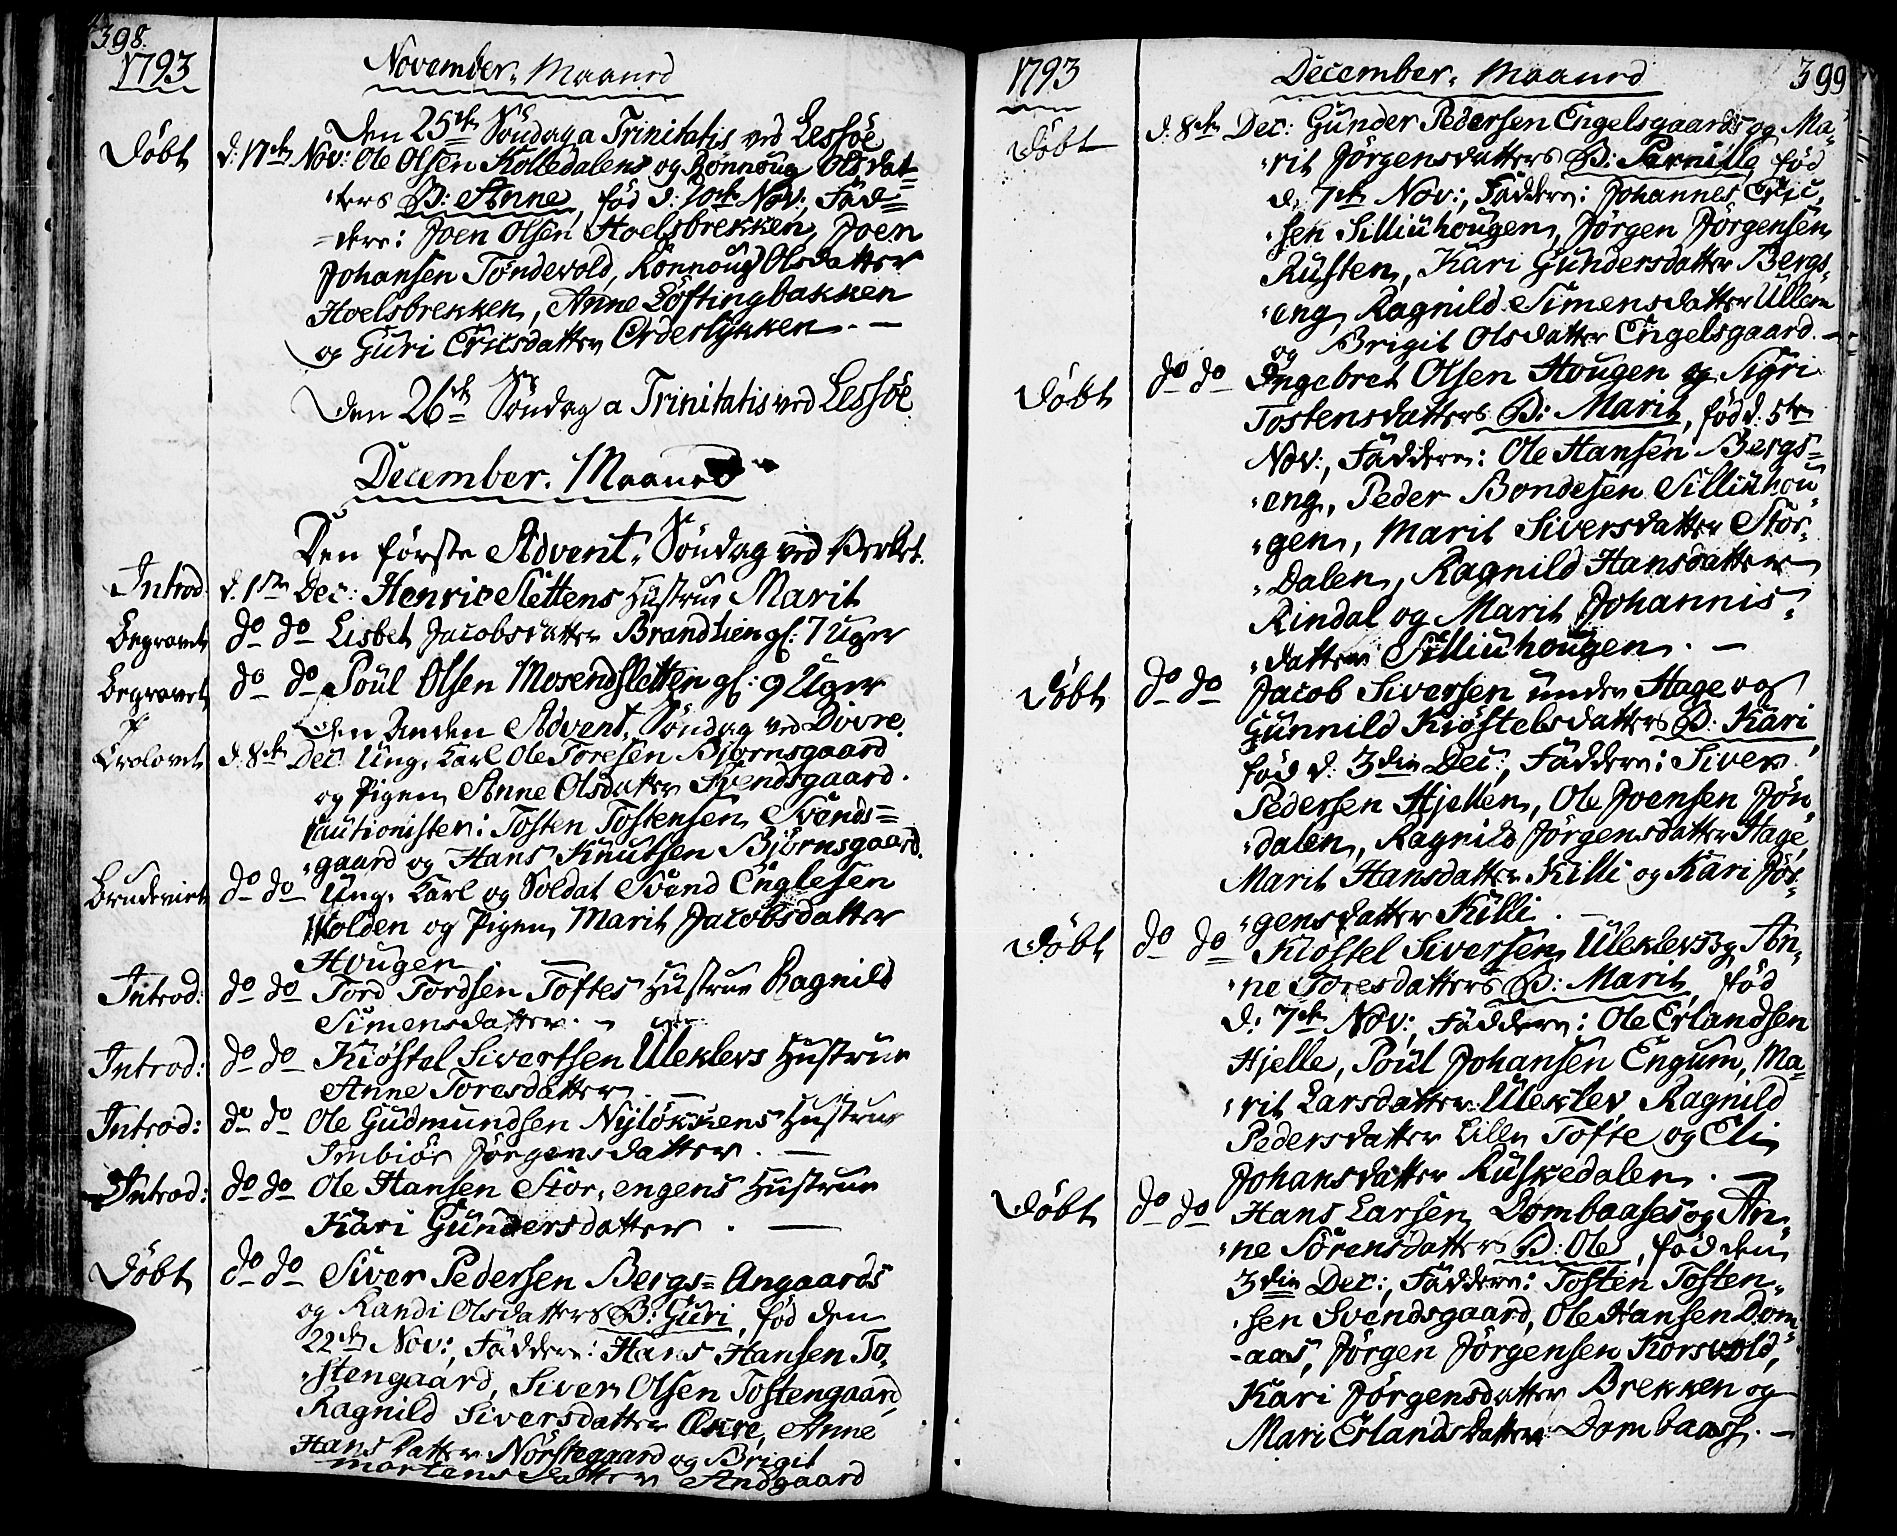 398.
1793
November. Maaned
Den 25de Söndag a Trinitatis ved Lessöe
Döbt d: 17de Nov: Ole Olsen Kolledalens og Rönnoug Olsdat=
ters B: Anne, fød d: 10de Nov:, Fad=
dere: Joen Olsen Hoelsbrekken, Joen
Johansen Töndevold, Rönnoug Olsdatter
Hoelsbrekken, Anne Löftingbakken
og Guri Ericsdatter Ordeslykken. —
Den 26de Söndag a Trinitatis ved Lessöe
December. Maaned
Den förste Advent, Söndag ved Verket.
Introd d. 1ste Dec: Henric Slettens Hustrue Marit
Begravet do do Lisbet Jacobsdatter Brandlien gl: 7 Uger
Begravet do do Poul Olsen Mosendsletten gl: 9 Uger
Den Anden Advent, Söndag ved Dovre.
Trolovet d. 8de Dec: Ung. Karl Ole Toresen Björnsgaard
og Pigen Anne Olsdatter Svendsgaard.
Cautionister: Tosten Tostensen Svends=
gaard og Hans Knutsen Björnsgaard.
Brudeviet do do Ung. Karl og Soldat Svend Englesen
Holden og Pigen Marit Jacobsdatter
Hougen
Introd: do do Tord Tordsen Toftes Hustrue Ragnild
Simensdatter. —
Introd: do do Kiöstel Sivertsen Uleklevs Hustrue
Anne Toresdatter
Introd: do do Ole Gudmundsen Nylökkens Hustrue
Imbiör Jörgensdatter. —
Introd: do do Ole Hansen Stor-engens Hustrue
Kari Gundersdatter. —
Döbt do do Siver Pedersen Bergs=Angaards
og Randi Olsdatters B: Guri, fød den
22de Nov:, Faddere: Hans Hansen To-
stengaard, Siver Olsen Tostengaard,
Ragnild Siversdatter Okre, Anne
Hans Datter Nörstegaard og Brigit
Mortensdatter Andgaard
1793 December. Maaned 399
Döbt d: 8de Dec: Gunder Pedersen Engelsgaards og Ma-
rit Jörgensdatters B: Pernille, fød
d. 7de Nov:, Faddere: Johannes Eric-
sen Silliuhougen, Jörgen Jörgensen
Rusten, Kari Gundersdatter Bergs-
eng, Ragnild Simensdatter Ullem
og Brigit Olsdatter Engelsgaard. —
Döbt do do Ingebret Olsen Hougen og Sigri
Tostensdatters B: Marit, fød d. 5te
Nov:, Faddere: Ole Hansen Bergs=
eng, Peder Bondesen Silliuhou-
gen, Marit Siversdatter Stor-
dalen, Ragnild Hansdatter
Rindal og Marit Johannis-
datter Silliuhougen. —
Döbt do do Jacob Siversen under Hage og
Gunnild Kiöstelsdatters B: Kari
fød d. 3die Dec:, Faddere: Siver
Pedersen Hjellen, Ole Joensen Jön-
dalen, Ragnild Jörgensdatter Hage,
Marit Hansdatter Killi og Kari Jör-
gensdatter Killi.
Döbt do do Kiöstel Siversen Uleklevs og An-
ne Toresdatters B: Marit, fød
d: 7de Nov:, Faddere: Ole Erlandsen
Hjelle, Poul Johansen Engum, Ma=
rit Larsdatter Uleklev, Ragnild
Pedersdatter Lille Tofte og Eli
Johansdatter Ruskedalen. —
Döbt do do Hans Larsen Dombaases og An-
ne Sörensdatters B: Ole, fød den
3die Dec:, Faddere: Tosten Tosten-
sen Svendsgaard, Ole Hansen Dom-
aas, Jörgen Jörgensen Korsvold,
Kari Jörgensdatter Brekken og
Mari Erlandsdatter Dombaas. —